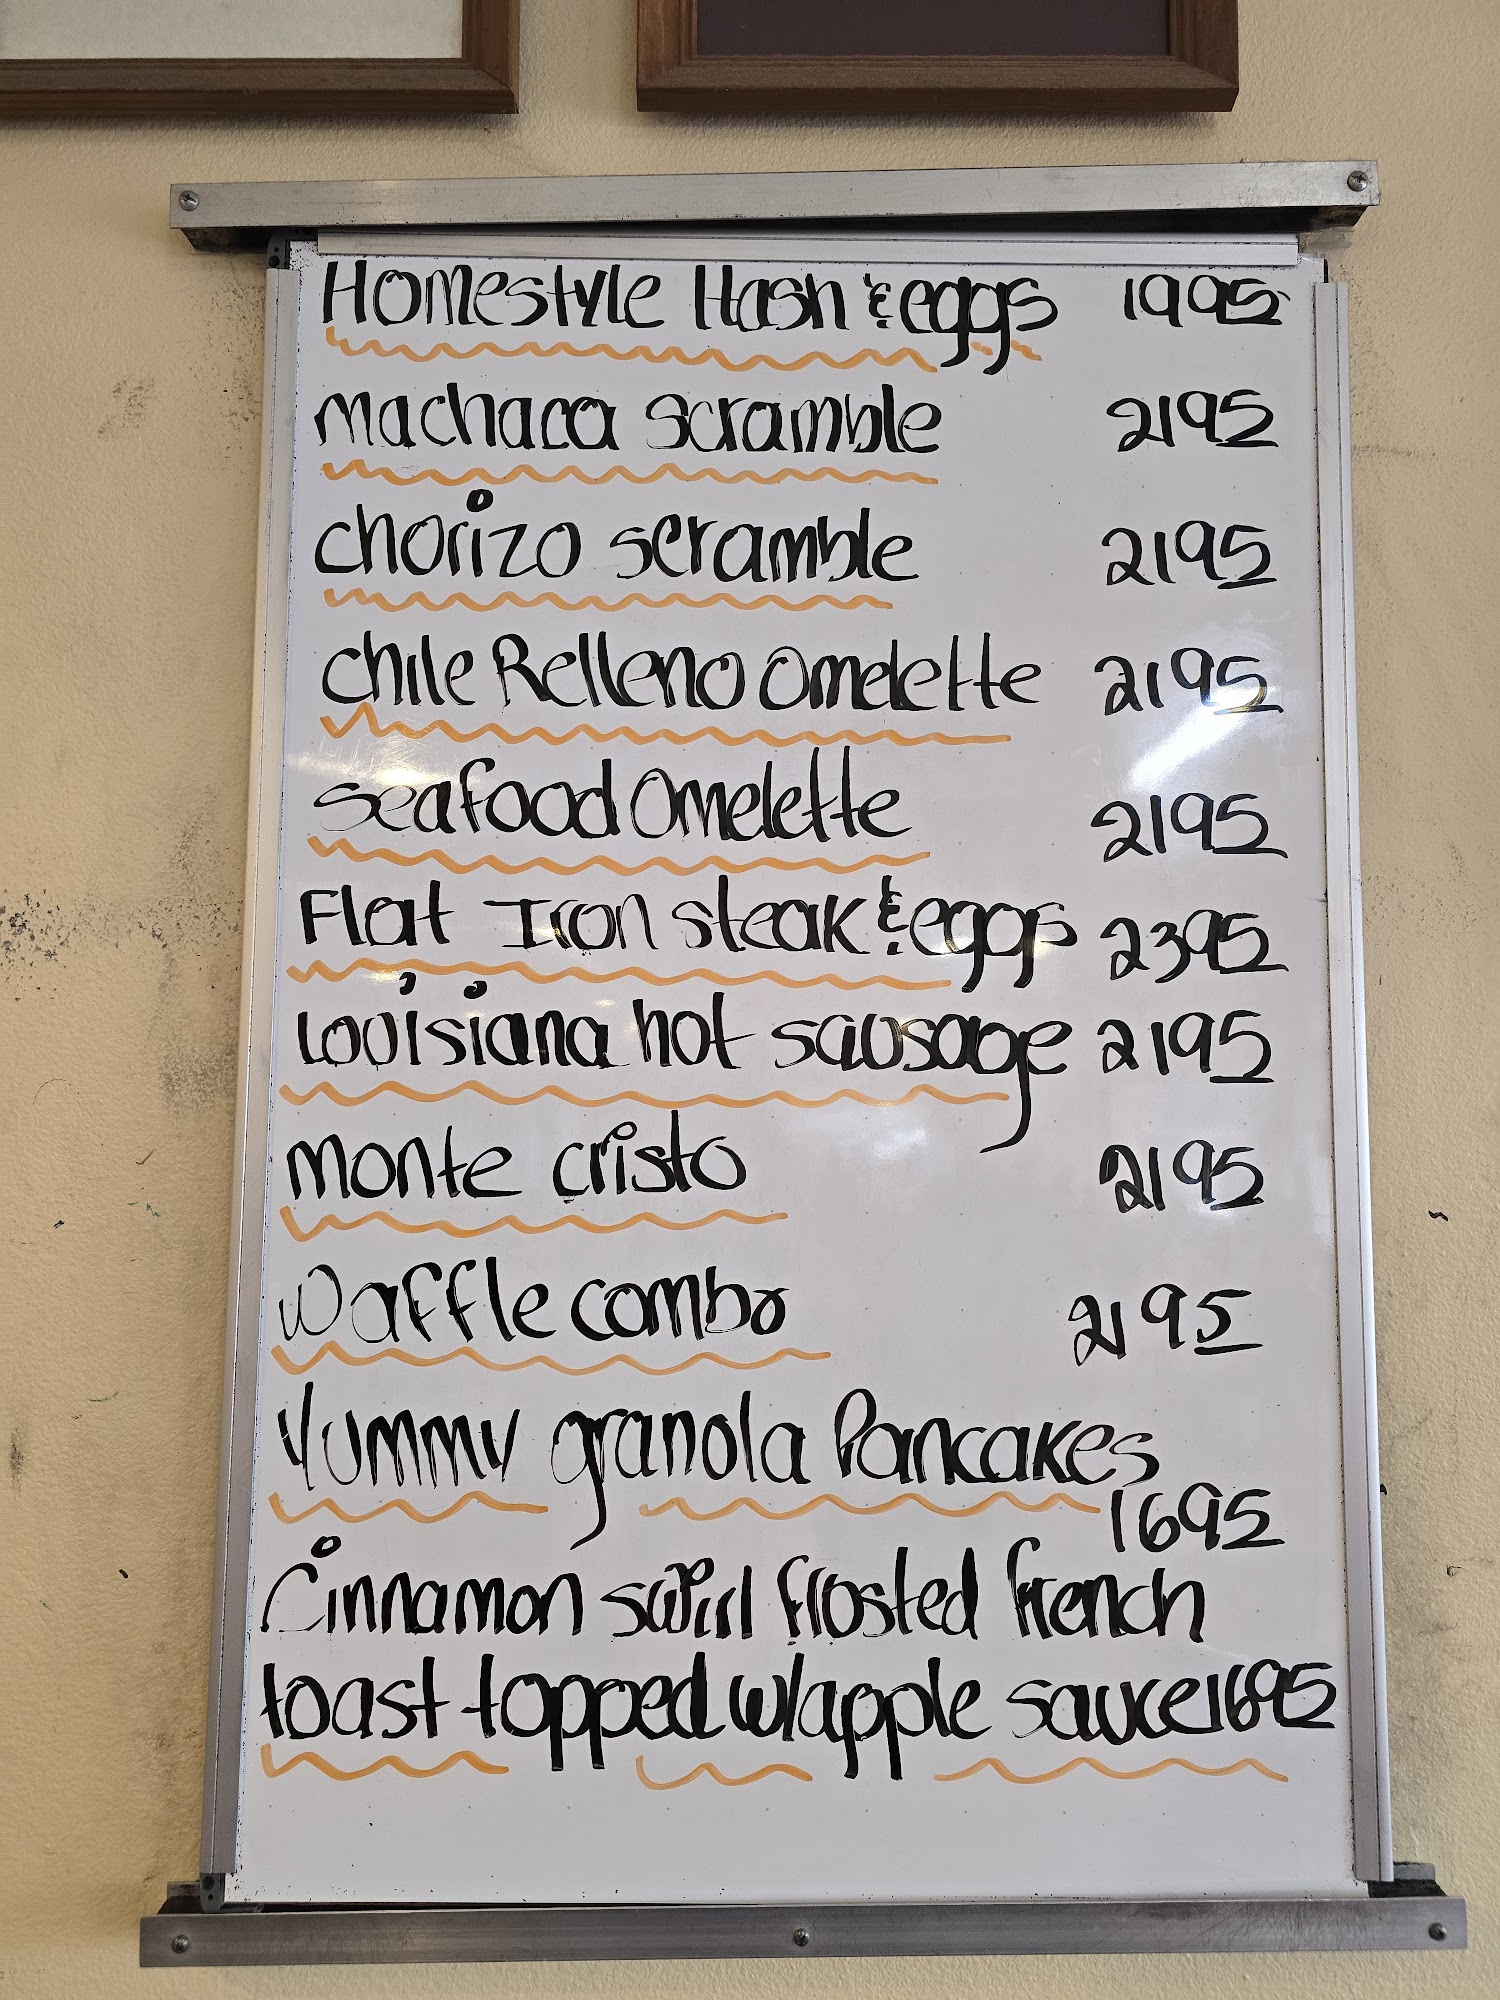 Homestyle Hash & eggs 1995
Machaca scramble 2195
chorizo scramble 2195
Chile Relleno Omelette 2195
seafood Omelette 2195
Flat Iron steak & eggs 2395
Louisiana hot sausage 2195
monte cristo 2195
Waffle combo 2195
Yummy granola Pancakes
1695
Cinnamon swirl frosted french
toast topped w/apple sauce 1695